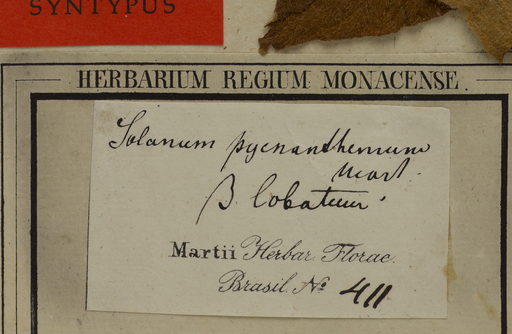 SYNTYPUS
HERBARIUM REGIUM MONACENSE.
Solanum pycnanthemum
Mart.
β. lobatum.
Martii Herbar. Florae.
Brasil. No 411